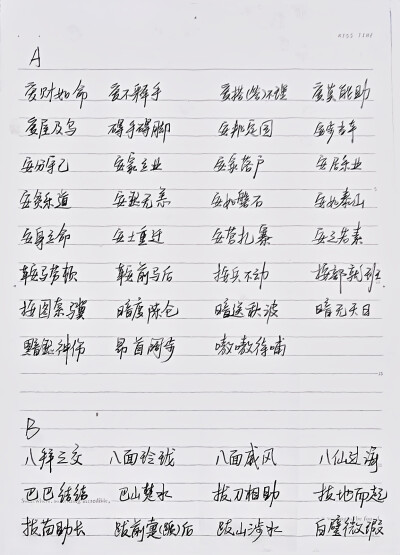 A
爱财如命 爱不释手 爱搭(答)不理 爱莫能助
爱屋及乌 碍手碍脚 安邦定国 安步当车
安分守己 安家立业 安家落户 安居乐业
安贫乐道 安然无恙 安如磐石 安如泰山
安身立命 安土重迁 安营扎寨 安之若素
鞍马劳顿 鞍前马后 按兵不动 按部就班
按图索骥 暗度陈仓 暗送秋波 暗无天日
黯然神伤 昂首阔步 嗷嗷待哺
B
八拜之交 八面玲珑 八面威风 八仙过海
巴巴结结 巴山楚水 拔刀相助 拔地而起
拔苗助长 跋前疐(踬)后 跋山涉水 白璧微瑕